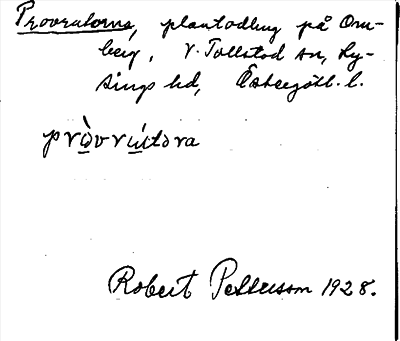 Provrutorna, plantodling på Orm-
berg, V. Tollstad sn, Ly-
sings hd, Östergötl. l.
pròvrútora
Robert Pettersson 1928.